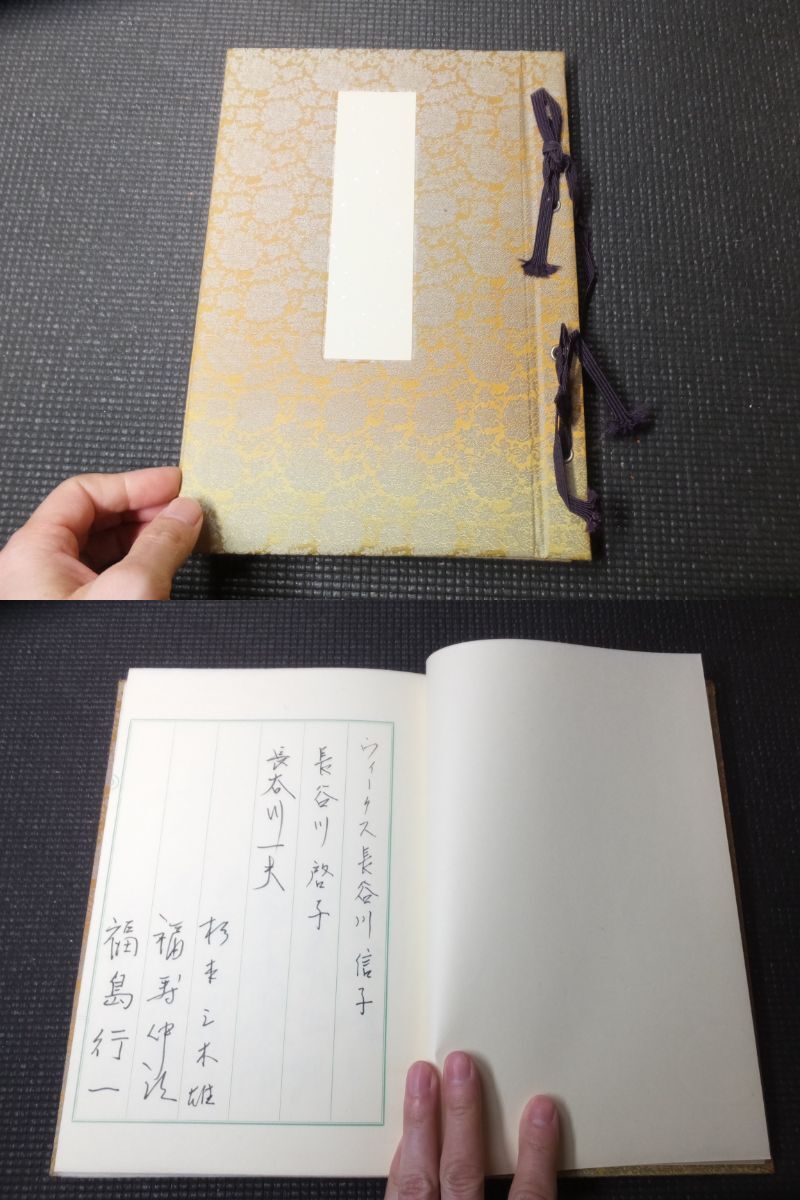 ウィークス長谷川信子
長谷川啓子
長谷川一夫
杉本三木雄
福寿仲
福島行一